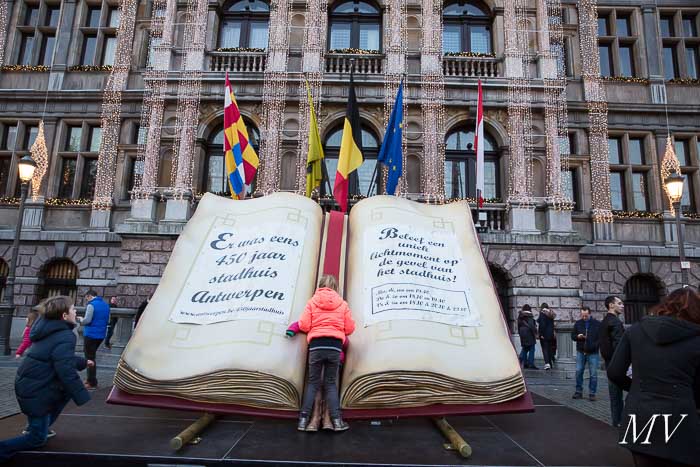 Er was eens
450 jaar
stadhuis
Antwerpen
Beleef een
uniek
lichtmoment op
de gevel van
het stadhuis!
MV